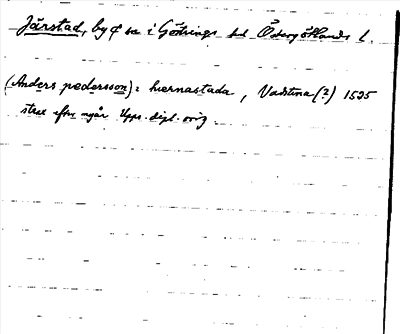 Järstad, by o sn i Göstrings hd Östergötlands l.
(Anders pedersson) i hiernastada, Vadstena (?) 1525
strax efter nyår Upps. dipl. orig